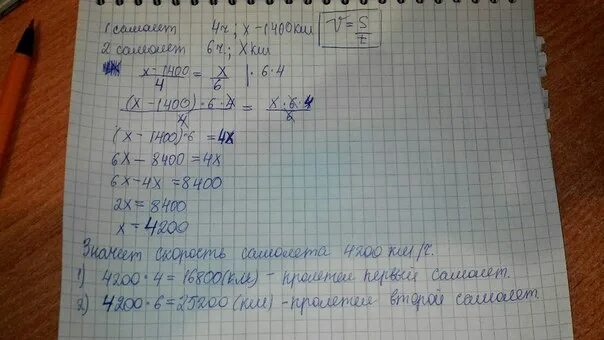 1 самолет 4ч; x-1400км V = S/t
2 самолет 6ч; X км
x-1400/4 = x/6 | · 6 · 4
(x-1400)·6·4/4 = x·6·4/6
(x-1400)·6 = 4x
6x - 8400 = 4x
6x - 4x = 8400
2x = 8400
x = 4200
Значит скорость самолета 4200 км/ч.
1) 4200·4 = 16800 (км) - пролетел первый самолет.
2) 4200·6 = 25200 (км) - пролетел второй самолет